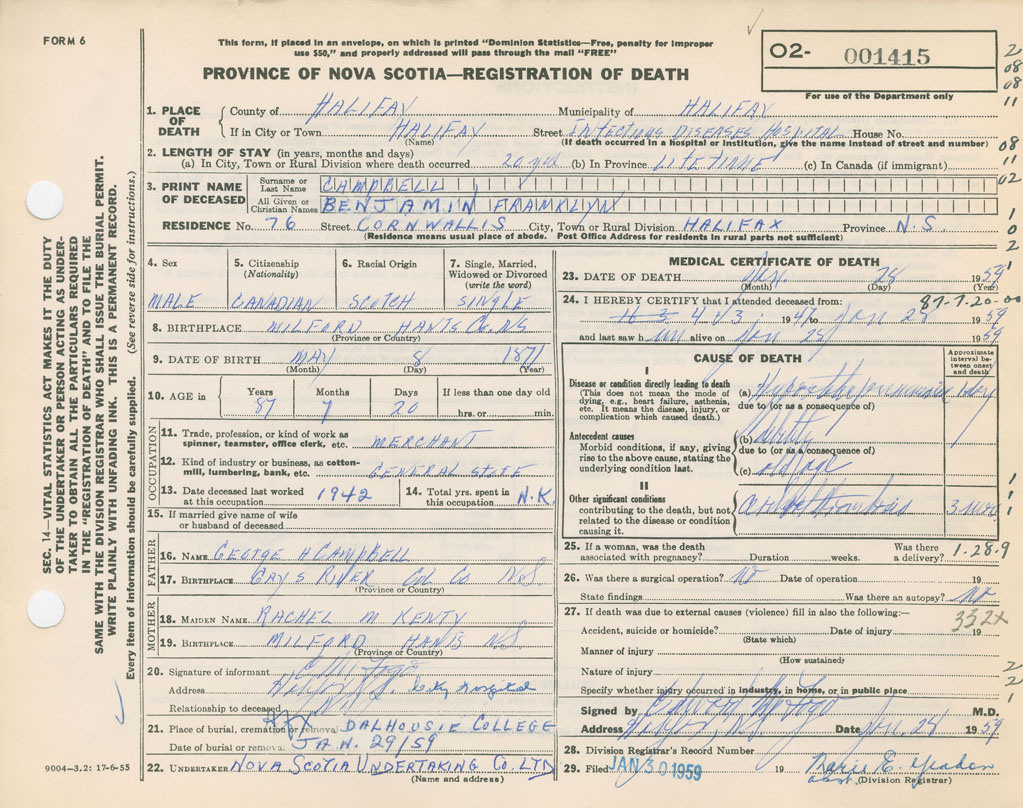 FORM 6
This form, if placed in an envelope, on which is printed "Dominion Statistics—Free, penalty for improper
use $50," and properly addressed will pass through the mail "FREE"
PROVINCE OF NOVA SCOTIA—REGISTRATION OF DEATH
O2- 001415
For use of the Department only
2
08
08
11
1. PLACE OF DEATH
County of HALIFAX Municipality of HALIFAX
If in City or Town HALIFAX Street INFECTIOUS DISEASES HOSPITAL House No.
(Name) (If death occurred in a hospital or institution, give the name instead of street and number)
08
2. LENGTH OF STAY (in years, months and days)
(a) In City, Town or Rural Division where death occurred 20 yrs (b) In Province LIFETIME (c) In Canada (if immigrant)
11
02
3. PRINT NAME OF DECEASED
Surname or Last Name CAMPBELL
All Given or Christian Names BENJAMIN FRANKLYN
RESIDENCE No. 76 Street CORNWALLIS City, Town or Rural Division HALIFAX Province N.S.
(Residence means usual place of abode. Post Office Address for residents in rural parts not sufficient)
1
0
2
SEC. 14—VITAL STATISTICS ACT MAKES IT THE DUTY
OF THE UNDERTAKER OR PERSON ACTING AS UNDER-
TAKER TO OBTAIN ALL THE PARTICULARS REQUIRED
IN THE "REGISTRATION OF DEATH" AND TO FILE THE
SAME WITH THE DIVISION REGISTRAR WHO SHALL ISSUE THE BURIAL PERMIT.
WRITE PLAINLY WITH UNFADING INK. THIS IS A PERMANENT RECORD.
Every item of information should be carefully supplied. (See reverse side for instructions.)
4. Sex 5. Citizenship (Nationality) 6. Racial Origin 7. Single, Married, Widowed or Divorced (write the word)
MALE CANADIAN SCOTCH SINGLE
8. BIRTHPLACE MILFORD HANTS Co. NS
(Province or Country)
9. DATE OF BIRTH MAY 8 1871
(Month) (Day) (Year)
10. AGE in Years Months Days If less than one day old
87 7 20 hrs. or min.
OCCUPATION
11. Trade, profession, or kind of work as spinner, teamster, office clerk, etc. MERCHANT
12. Kind of industry or business, as cotton-mill, lumbering, bank, etc. GENERAL STORE
13. Date deceased last worked at this occupation 1942 14. Total yrs. spent in this occupation N.K.
15. If married give name of wife or husband of deceased
FATHER
16. NAME GEORGE H CAMPBELL
17. BIRTHPLACE GAYS RIVER COL CO N.S.
(Province or Country)
MOTHER
18. MAIDEN NAME RACHEL M KENTY
19. BIRTHPLACE MILFORD HANTS NS
(Province or Country)
20. Signature of informant
Address Halifax N.S. City Hospital
Relationship to deceased
21. Place of burial, cremation or removal DALHOUSIE COLLEGE
Date of burial or removal JAN. 29/59
22. UNDERTAKER NOVA SCOTIA UNDERTAKING CO. LTD
(Name and address)
9004—3.2: 17-6-55
MEDICAL CERTIFICATE OF DEATH
23. DATE OF DEATH Jan. 28 1959
(Month) (Day) (Year)
24. I HEREBY CERTIFY that I attended deceased from: 87-7-20-00
to Jan 28 1959
and last saw him alive on Jan 28 1959
CAUSE OF DEATH
Approximate interval between onset and death
I
Disease or condition directly leading to death
(This does not mean the mode of dying, e.g., heart failure, asthenia, etc. It means the disease, injury, or complication which caused death.)
(a) Hypostatic pneumonia
due to (or as a consequence of)
Antecedent causes
Morbid conditions, if any, giving rise to the above cause, stating the underlying condition last.
(b) debility
due to (or as a consequence of)
(c) old age
II
Other significant conditions
contributing to the death, but not related to the disease or condition causing it.
1
1
1
25. If a woman, was the death associated with pregnancy? Duration weeks. Was there a delivery? 1-28-9
26. Was there a surgical operation? no Date of operation 19
State findings Was there an autopsy? no
27. If death was due to external causes (violence) fill in also the following:— 332x
Accident, suicide or homicide? Date of injury 19
(State which)
Manner of injury
(How sustained)
Nature of injury
2
2
Specify whether injury occurred in industry, in home, or in public place
1
Signed by M.D.
Address Halifax, N.S. Date Jan. 28 1959
28. Division Registrar's Record Number
29. Filed JAN 30 1959 19
(Division Registrar)